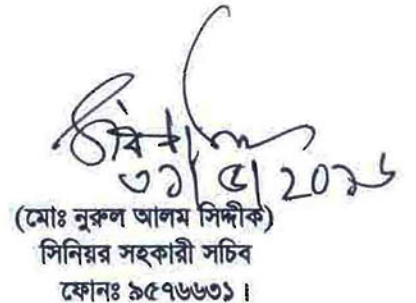 ৩১/৫/2০১৬
(মোঃ নুরুল আলম সিদ্দীক)
সিনিয়র সহকারী সচিব
ফোনঃ ৯৫৭৬৬৩১।